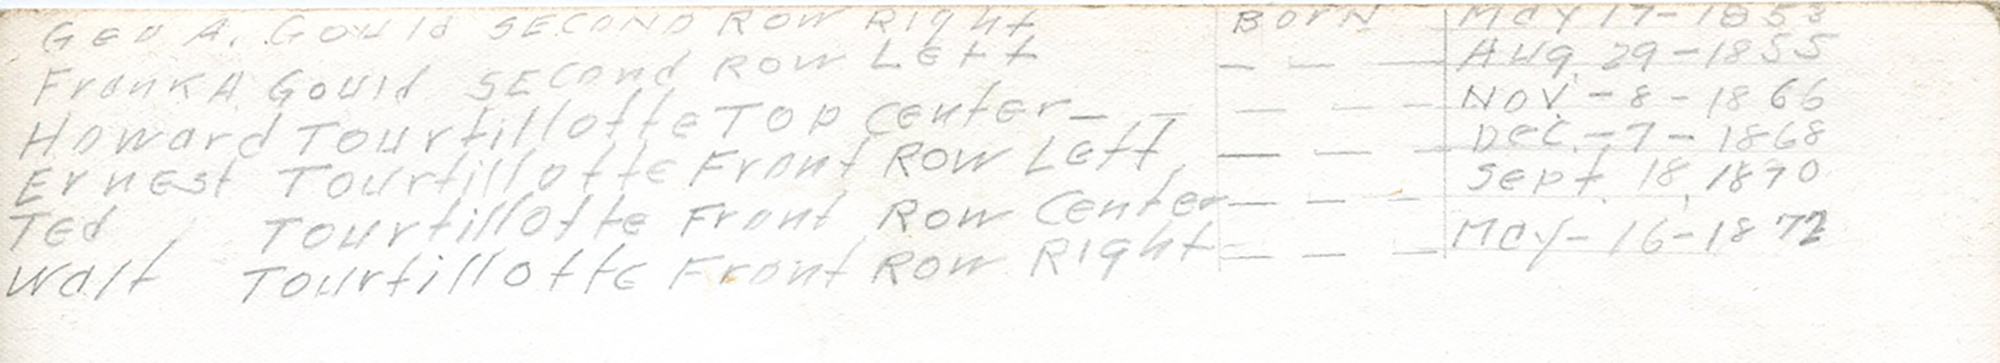 Geo A. Gould Second Row Right Born May 17-1853
Frank A Gould Second Row Left — — — Aug. 29-1855
Howard Tourtillotte Top Center — — — — — Nov.-8-1866
Ernest Tourtillotte Front Row Left, — — — Dec.-7-1868
Ted Tourtillotte Front Row Center — — — Sept. 18, 1870
Walt Tourtillotte Front Row Right — — — May-16-1872